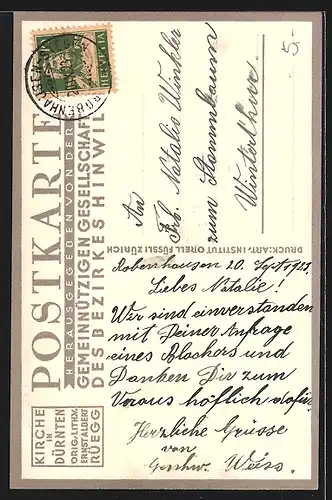 5.-
HELVETIA
ROBENHAUSEN
POSTKARTE
HERAUSGEGEBEN VON DER
GEMEINNÜTZIGEN GESELLSCHAFT
DES BEZIRKES HINWIL
KIRCHE
IN
DÜRNTEN
ORIG. LITH. V.
ERNST ALBERT
RÜEGG
DRUCK: ART. INSTITUT ORELL FÜSSLI ZÜRICH
An
Frl. Natalie Winkler
zum Stammbaum
Winterthur.
Robenhausen 20. Sept. 1927
Liebes Natalie!
Wir sind einverstanden
mit Deiner Anfrage
eines und
Danken Dir zum
Voraus höflich dafür.
Herzliche Grüsse
von
Geschw. Weiss.